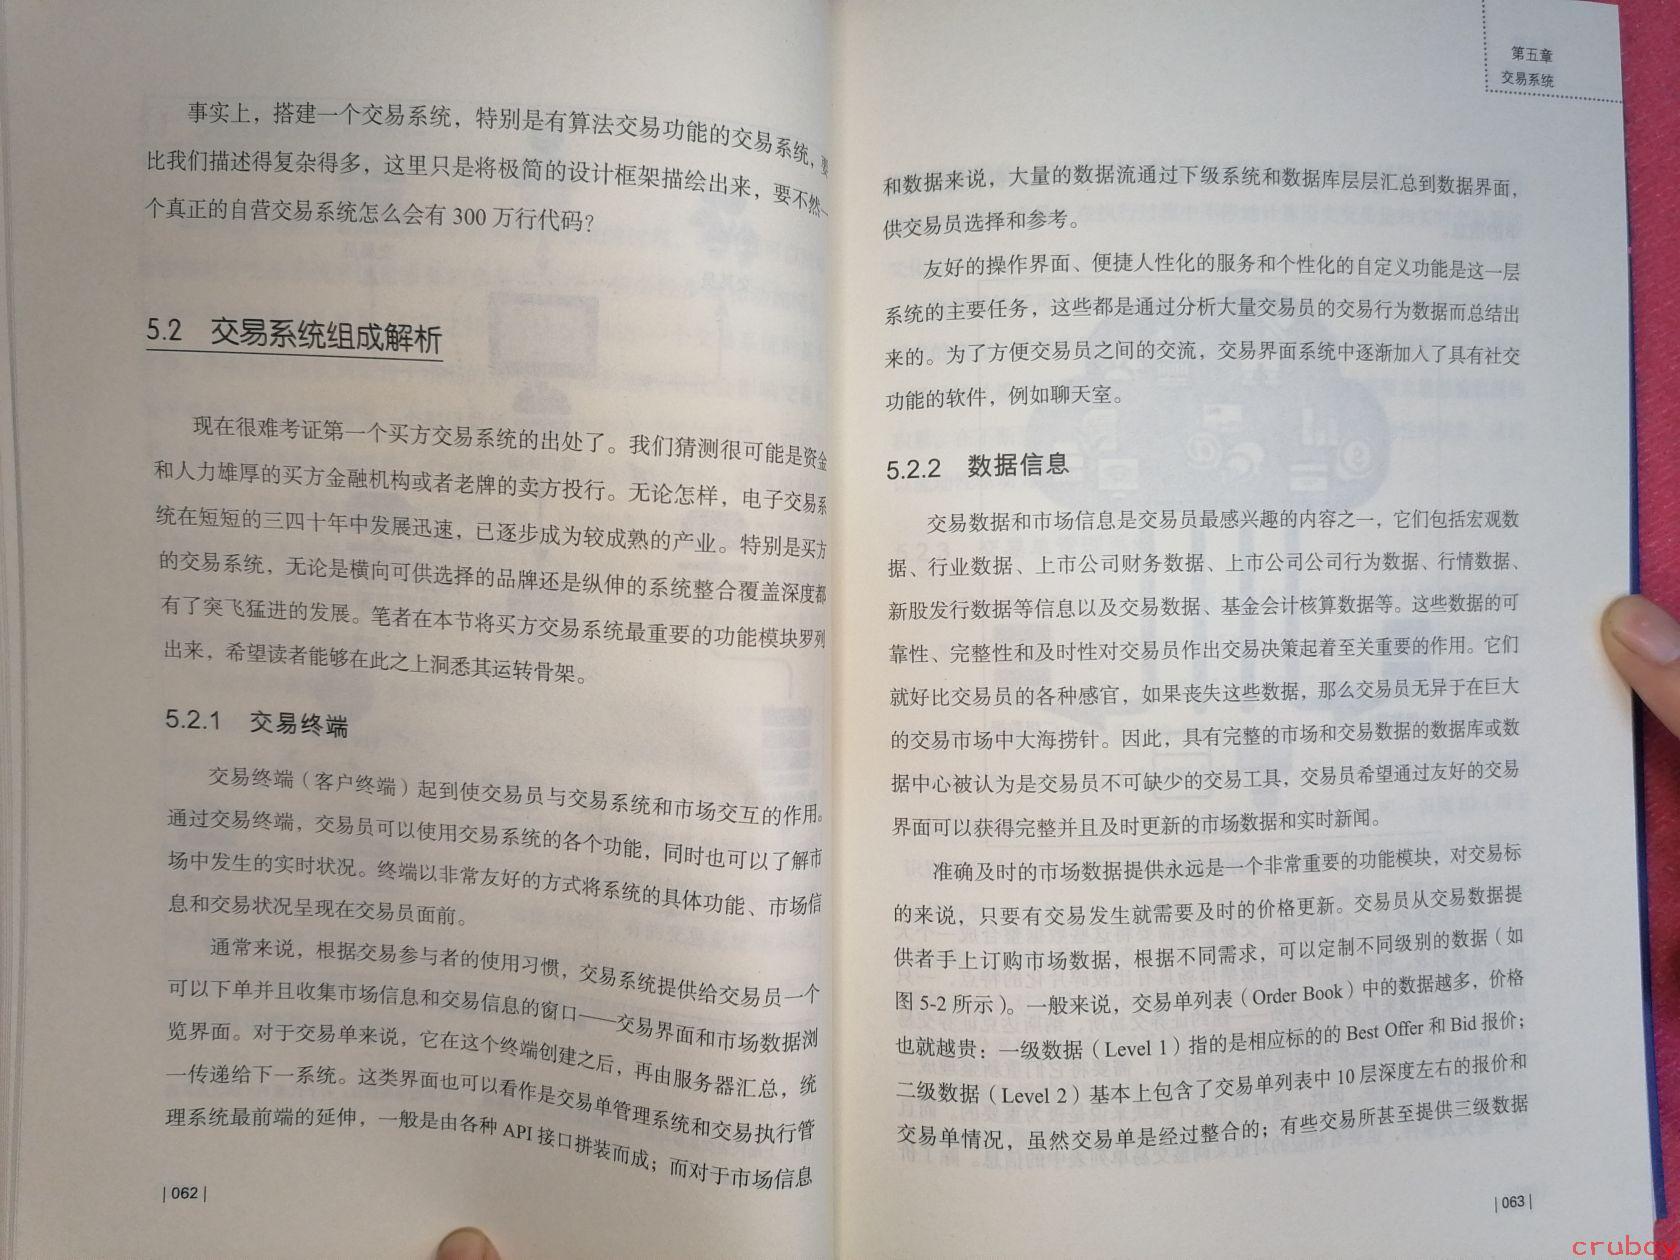 事实上，搭建一个交易系统，特别是有算法交易功能的交易系统，要
比我们描述得复杂得多，这里只是将极简的设计框架描绘出来，要不然一
个真正的自营交易系统怎么会有 300 万行代码？
5.2 交易系统组成解析
现在很难考证第一个买方交易系统的出处了。我们猜测很可能是资金
和人力雄厚的买方金融机构或者老牌的卖方投行。无论怎样，电子交易系
统在短短的三四十年中发展迅速，已逐步成为较成熟的产业。特别是买方
的交易系统，无论是横向可供选择的品牌还是纵伸的系统整合覆盖深度都
有了突飞猛进的发展。笔者在本节将买方交易系统最重要的功能模块罗列
出来，希望读者能够在此之上洞悉其运转骨架。
5.2.1 交易终端
交易终端（客户终端）起到使交易员与交易系统和市场交互的作用。
通过交易终端，交易员可以使用交易系统的各个功能，同时也可以了解市
场中发生的实时状况。终端以非常友好的方式将系统的具体功能、市场信
息和交易状况呈现在交易员面前。
通常来说，根据交易参与者的使用习惯，交易系统提供给交易员一个
可以下单并且收集市场信息和交易信息的窗口——交易界面和市场数据浏
览界面。对于交易单来说，它在这个终端创建之后，再由服务器汇总，统
一传递给下一系统。这类界面也可以看作是交易单管理系统和交易执行管
理系统最前端的延伸，一般是由各种 API 接口拼装而成；而对于市场信息
| 062 |
第五章
交易系统
和数据来说，大量的数据流通过下级系统和数据库层层汇总到数据界面，
供交易员选择和参考。
友好的操作界面、便捷人性化的服务和个性化的自定义功能是这一层
系统的主要任务，这些都是通过分析大量交易员的交易行为数据而总结出
来的。为了方便交易员之间的交流，交易界面系统中逐渐加入了具有社交
功能的软件，例如聊天室。
5.2.2 数据信息
交易数据和市场信息是交易员最感兴趣的内容之一，它们包括宏观数
据、行业数据、上市公司财务数据、上市公司公司行为数据、行情数据、
新股发行数据等信息以及交易数据、基金会计核算数据等。这些数据的可
靠性、完整性和及时性对交易员作出交易决策起着至关重要的作用。它们
就好比交易员的各种感官，如果丧失这些数据，那么交易员无异于在巨大
的交易市场中大海捞针。因此，具有完整的市场和交易数据的数据库或数
据中心被认为是交易员不可缺少的交易工具，交易员希望通过友好的交易
界面可以获得完整并且及时更新的市场数据和实时新闻。
准确及时的市场数据提供永远是一个非常重要的功能模块，对交易标
的来说，只要有交易发生就需要及时的价格更新。交易员从交易数据提
供者手上订购市场数据，根据不同需求，可以定制不同级别的数据（如
图 5-2 所示）。一般来说，交易单列表（Order Book）中的数据越多，价格
也就越贵：一级数据（Level 1）指的是相应标的的 Best Offer 和 Bid 报价；
二级数据（Level 2）基本上包含了交易单列表中 10 层深度左右的报价和
交易单情况，虽然交易单是经过整合的；有些交易所甚至提供三级数据
| 063 |